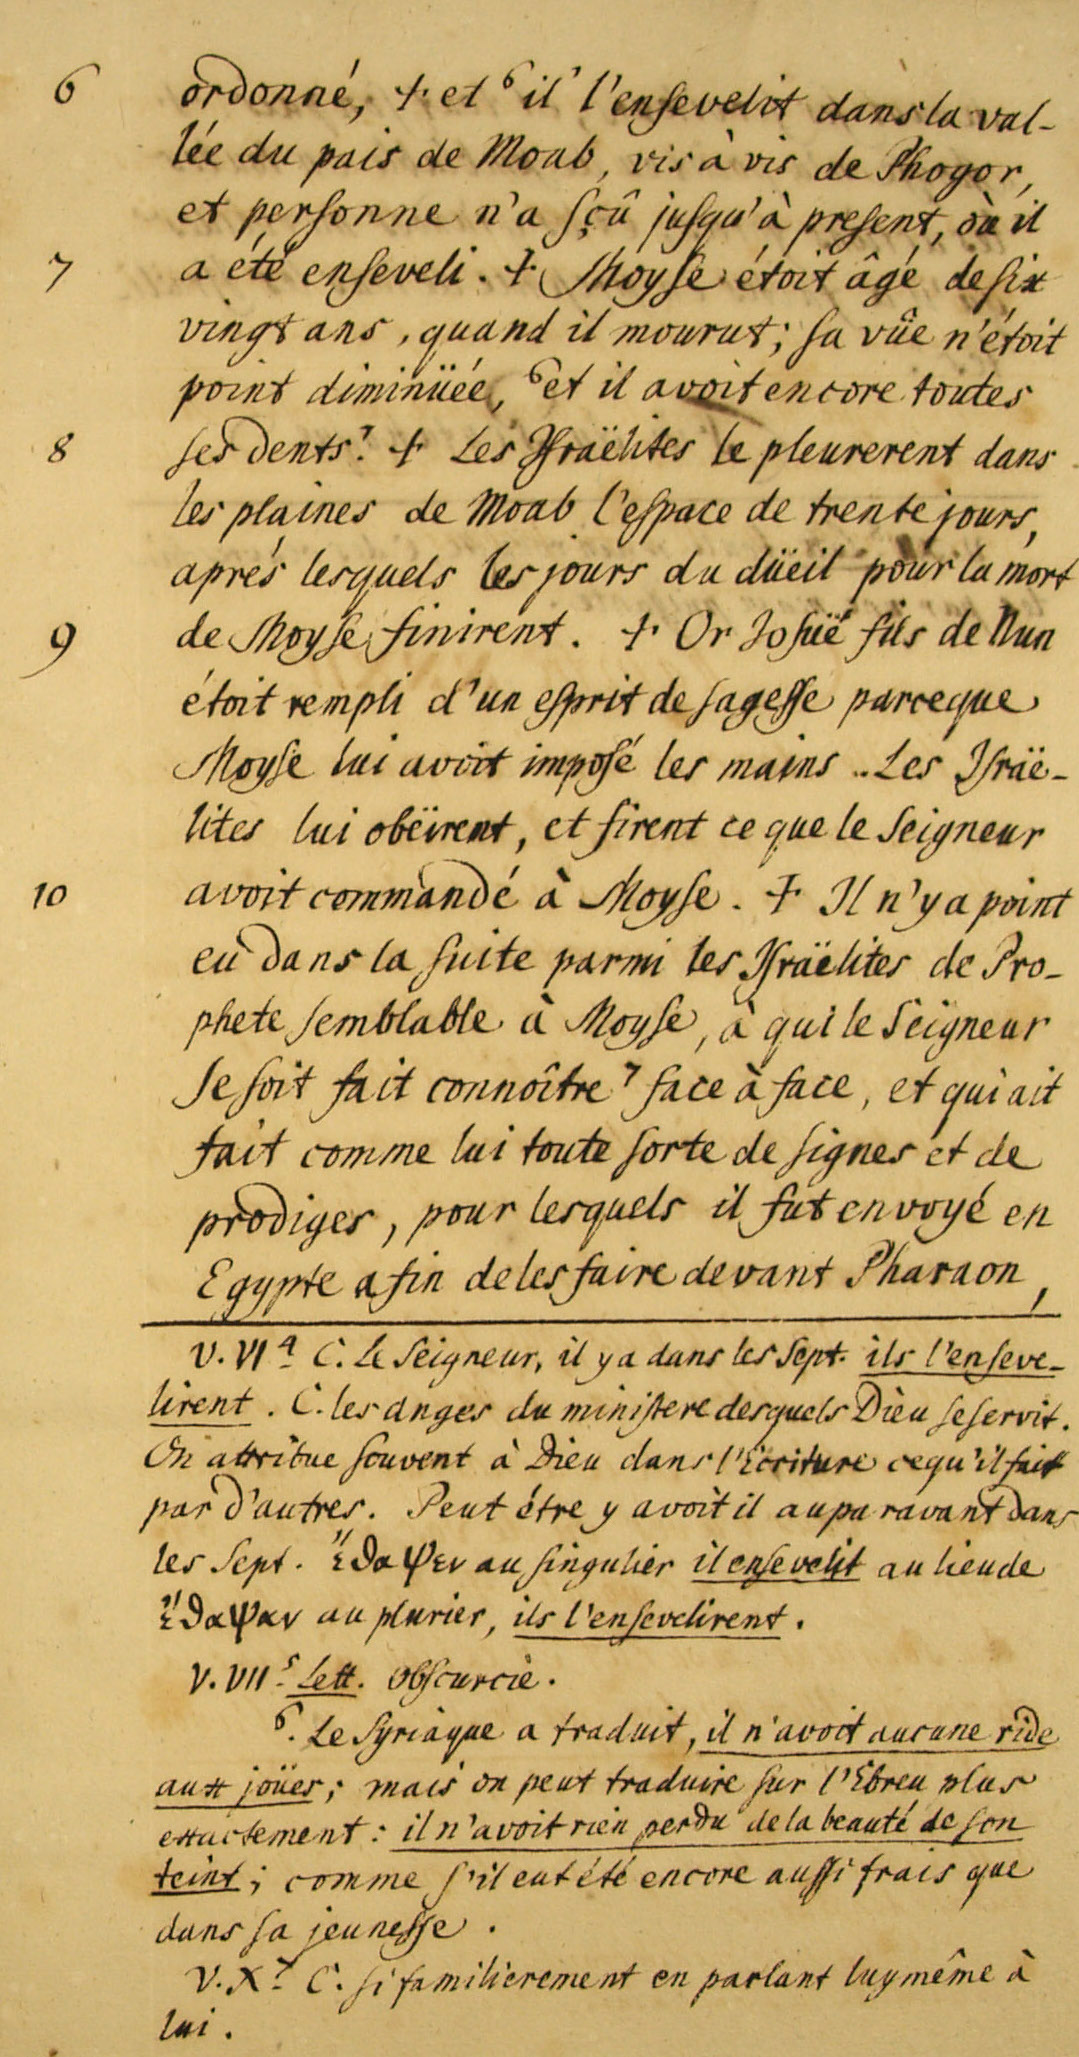 6 ordonné, + et ⁶ il l'ensevelit dans la val-
lée du païs de Moab, vis à vis de Phogor,
et personne n'a sçû jusqu'à present, où il
7 a été enseveli. + Moyse étoit âgé de six
vingt ans, quand il mourut; sa vûe n'étoit
point diminüée, ⁶ et il avoit encore toutes
8 ses dents ⁷. + Les Israëlites le pleurerent dans
les plaines de Moab l'espace de trente jours,
aprés lesquels les jours du düeil pour la mort
9 de Moyse finirent. + Or Josüé fils de Nun
étoit rempli d'un esprit de sagesse parceque
Moyse lui avoit imposé les mains.. Les Israë-
lites lui obëirent, et firent ce que le Seigneur
10 avoit commandé à Moyse. + Il n'y a point
eu dans la suite parmi les Israëlites de Pro-
phete semblable à Moyse, à qui le Seigneur
se soit fait connoître ⁷ face à face, et qui ait
fait comme lui toute sorte de signes et de
prodiges, pour lesquels il fut envoyé en
Egypte afin de les faire devant Pharaon,
V. VI ⁴. C. Le Seigneur, il y a dans les Sept. ils l'enseve-
lirent. C. les anges du ministere desquels Dieu se servit.
On attribue souvent à Dieu dans l'Ecriture ce qu'il fait
par d'autres. Peut étre y avoit il auparavant dans
les Sept. ἔθαψεν au singulier il ensevelit au lieu de
ἔθαψαν au plurier, ils l'ensevelirent.
V. VII ⁵. Lett. obscurcie.
⁶. Le Syriaque a traduit, il n'avoit aucune ride
aux joües; mais on peut traduire sur l'Ebreu plus
exactement: il n'avoit rien perdu de la beauté de son
teint; comme s'il eut été encore aussi frais que
dans sa jeunesse.
V. X ⁷. C. si familierement en parlant luy même à
lui.